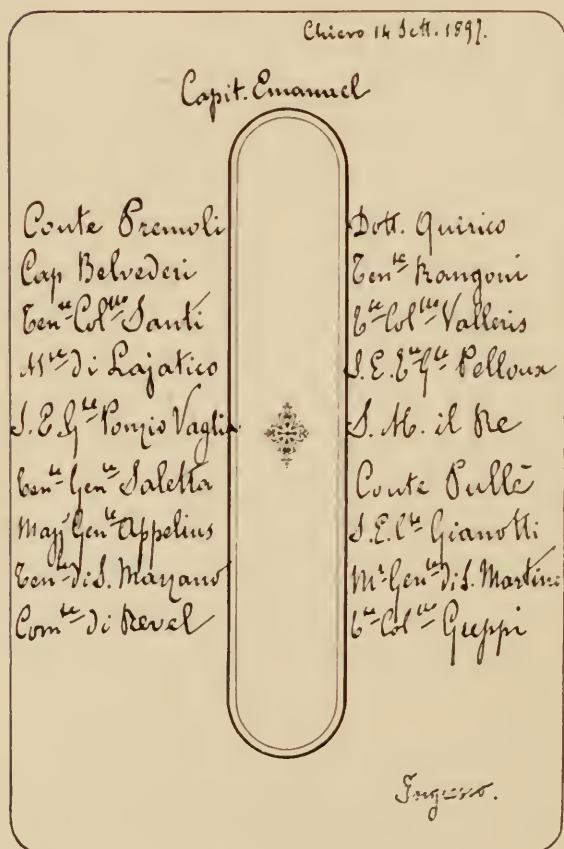 Chiero 14 Sett. 1897.
Capit. Emanuel
Conte Premoli
Cap Belvederi
Ten.te Col.llo Santi
M.se di Lajatico
S. E. G.le Ponzio Vaglia
Ten.te Gen.le Saletta
Magg. Gen.le Appelius
Ten.te di S. Marzano
Com.te di Revel
Dott. Quirico
Ten.te Rangoni
T.te Col.llo Valleris
S. E. T.te G.le Pelloux
S. M. il Re
Conte Pullè
S. E. C.te Gianotti
M.r Gen.le di S. Martino
T.te Col.llo Greppi
Ingresso.